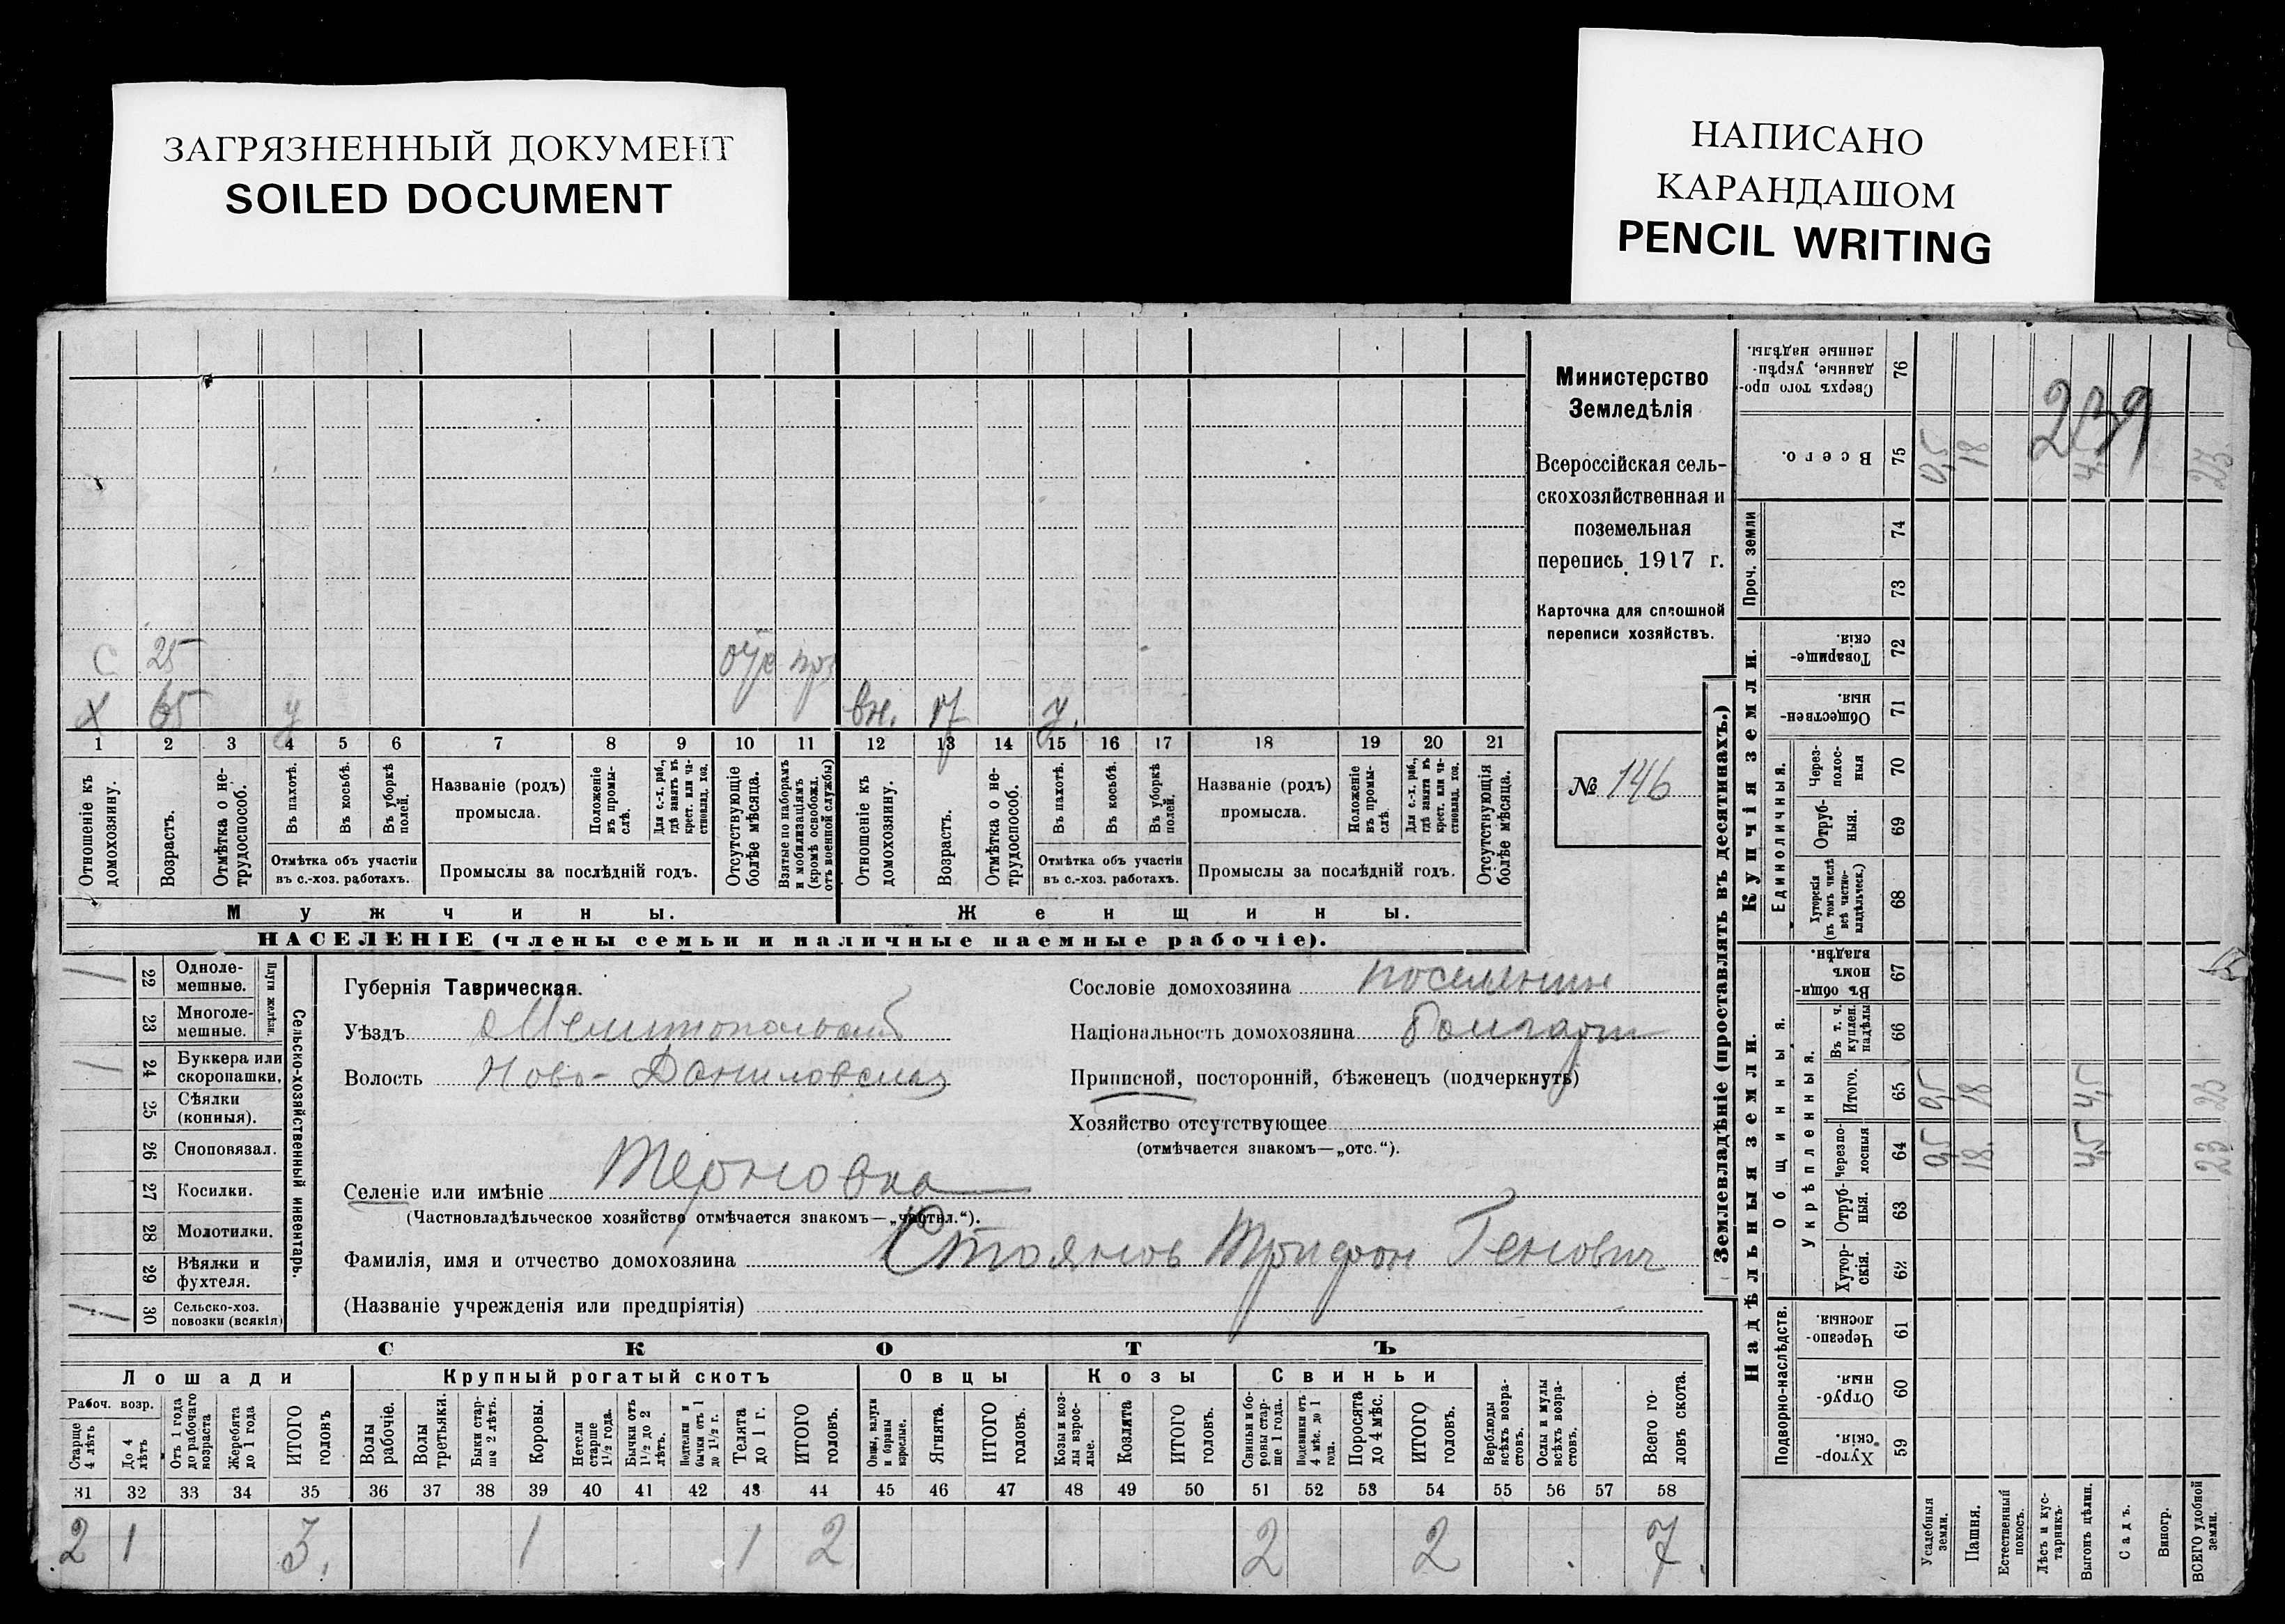 ЗАГРЯЗНЕННЫЙ ДОКУМЕНТ
SOILED DOCUMENT
НАПИСАНО
КАРАНДАШОМ
PENCIL WRITING
Министерство
Земледѣлія
Всероссійская сель-
скохозяйственная и
поземельная
перепись 1917 г.
Карточка для сплошной
переписи хозяйствъ.
№ 146
С 25
Х 65 у вн. 17 у.
1 2 3 4 5 6 7 8 9 10 11 12 13 14 15 16 17 18 19 20 21
Отношеніе къ домохозяину.
Возрастъ.
Отмѣтка о не-трудоспособ.
Въ пахотѣ.
Въ косьбѣ.
Въ уборкѣ полей.
Отмѣтка объ участіи
въ с.-хоз. работахъ.
Названіе (родъ)
промысла.
Положеніе въ промы-слѣ.
Для с.-х. раб., гдѣ занятъ въ крест. или ча-стновлад. хоз.
Промыслы за послѣдній годъ.
Отсутствующіе болѣе мѣсяца.
Взятые по наборамъ и мобилизаціямъ (кромѣ освобожд. отъ военной службы)
Отношеніе къ домохозяину.
Возрастъ.
Отмѣтка о не-трудоспособ.
Въ пахотѣ.
Въ косьбѣ.
Въ уборкѣ полей.
Отмѣтка объ участіи
въ с.-хоз. работахъ.
Названіе (родъ)
промысла.
Положеніе въ промы-слѣ
Для с.-х. раб., гдѣ занята въ крест. или ча-стновлад. хоз.
Промыслы за послѣдній годъ.
Отсутствующія болѣе мѣсяца.
Мужчины.
Женщины.
НАСЕЛЕНІЕ (члены семьи и наличные наемные рабочіе).
Сельско-хозяйственный инвентарь.
Плуги желѣзн.
1 22 Одноле-мешные.
23 Многоле-мешные.
1 24 Буккера или скоропашки.
25 Сѣялки (конныя).
26 Сноповязал.
27 Косилки.
28 Молотилки.
29 Вѣялки и фухтеля.
1 30 Сельско-хоз. повозки (всякія)
Губернія Таврическая.
Уѣздъ Мелитопольскій
Волость Ново-Даниловская
Селеніе или имѣніе Терновка
(Частновладѣльческое хозяйство отмѣчается знакомъ—„частвл.“).
Фамилія, имя и отчество домохозяина Стоянов Трифон Генович
(Названіе учрежденія или предпріятія)
Сословіе домохозяина поселянин
Національность домохозяина болгарин
Приписной, посторонній, бѣженецъ (подчеркнуть)
Хозяйство отсутствующее
(отмѣчается знакомъ—„отс.“).
СКОТЪ
Лошади
Крупный рогатый скотъ
Овцы
Козы
Свиньи
Рабоч. возр.
Старше 4 лѣтъ
До 4 лѣтъ
Отъ 1 года до рабочаго возраста
Жеребята до 1 года
ИТОГО головъ
Волы рабочіе.
Волы третьяки.
Быки стар-ше 2 лѣтъ.
Коровы.
Нетели старше 1½ года.
Бычки отъ 1½ до 2 лѣтъ.
Телята до 1 г.
ИТОГО головъ.
Овцы, валухи и бараны взрослые.
Ягнята.
ИТОГО головъ.
Козы и коз-лы взрос-лые.
Козлята
ИТОГО головъ.
Свиньи и бо-ровы стар-ше 1 года.
Подсвинки отъ 4 мѣс. до 1 года.
Поросята до 4 мѣс.
ИТОГО головъ.
Верблюды всѣхъ возра-стовъ.
Ослы и мулы всѣхъ возра-стовъ.
Всего го-ловъ скота.
31 32 33 34 35 36 37 38 39 40 41 42 43 44 45 46 47 48 49 50 51 52 53 54 55 56 57 58
2 1 3. 1 1 2 2 2 7.
Землевладѣніе (проставлять въ десятинахъ.)
Купчія земли.
Надѣльныя земли.
Сверхъ того про-данные, укрѣп-ленные надѣлы. 76
Всего. 75 18 23
Проч. земли 74 73
Товарище-скія. 72
Обществен-ныя 71
Единоличныя.
Через-полос-ныя 70
Отруб-ныя. 69
Хуторскія (въ томъ числѣ всѣ частно-владѣльческ.) 68
Общинныя.
Въ общин-номъ владѣн. 67
Укрѣпленныя.
Въ т. ч. куплен. надѣлы 66
Итого. 65 0,5 18 4,5 23
Черезпо-лосныя 64 0,5 18. 4,5 23
Отруб-ныя. 63
Хутор-скія. 62
Подворно-наслѣдств.
Черезпо-лосныя. 61
Отруб-ныя 60
Хутор-скія. 59
Усадебныя земли.
Пашня.
Естественный покосъ.
Лѣсъ и кус-тарникъ.
Выгонъ цѣлин.
Садъ.
Виногр.
ВСЕГО удобной земли.